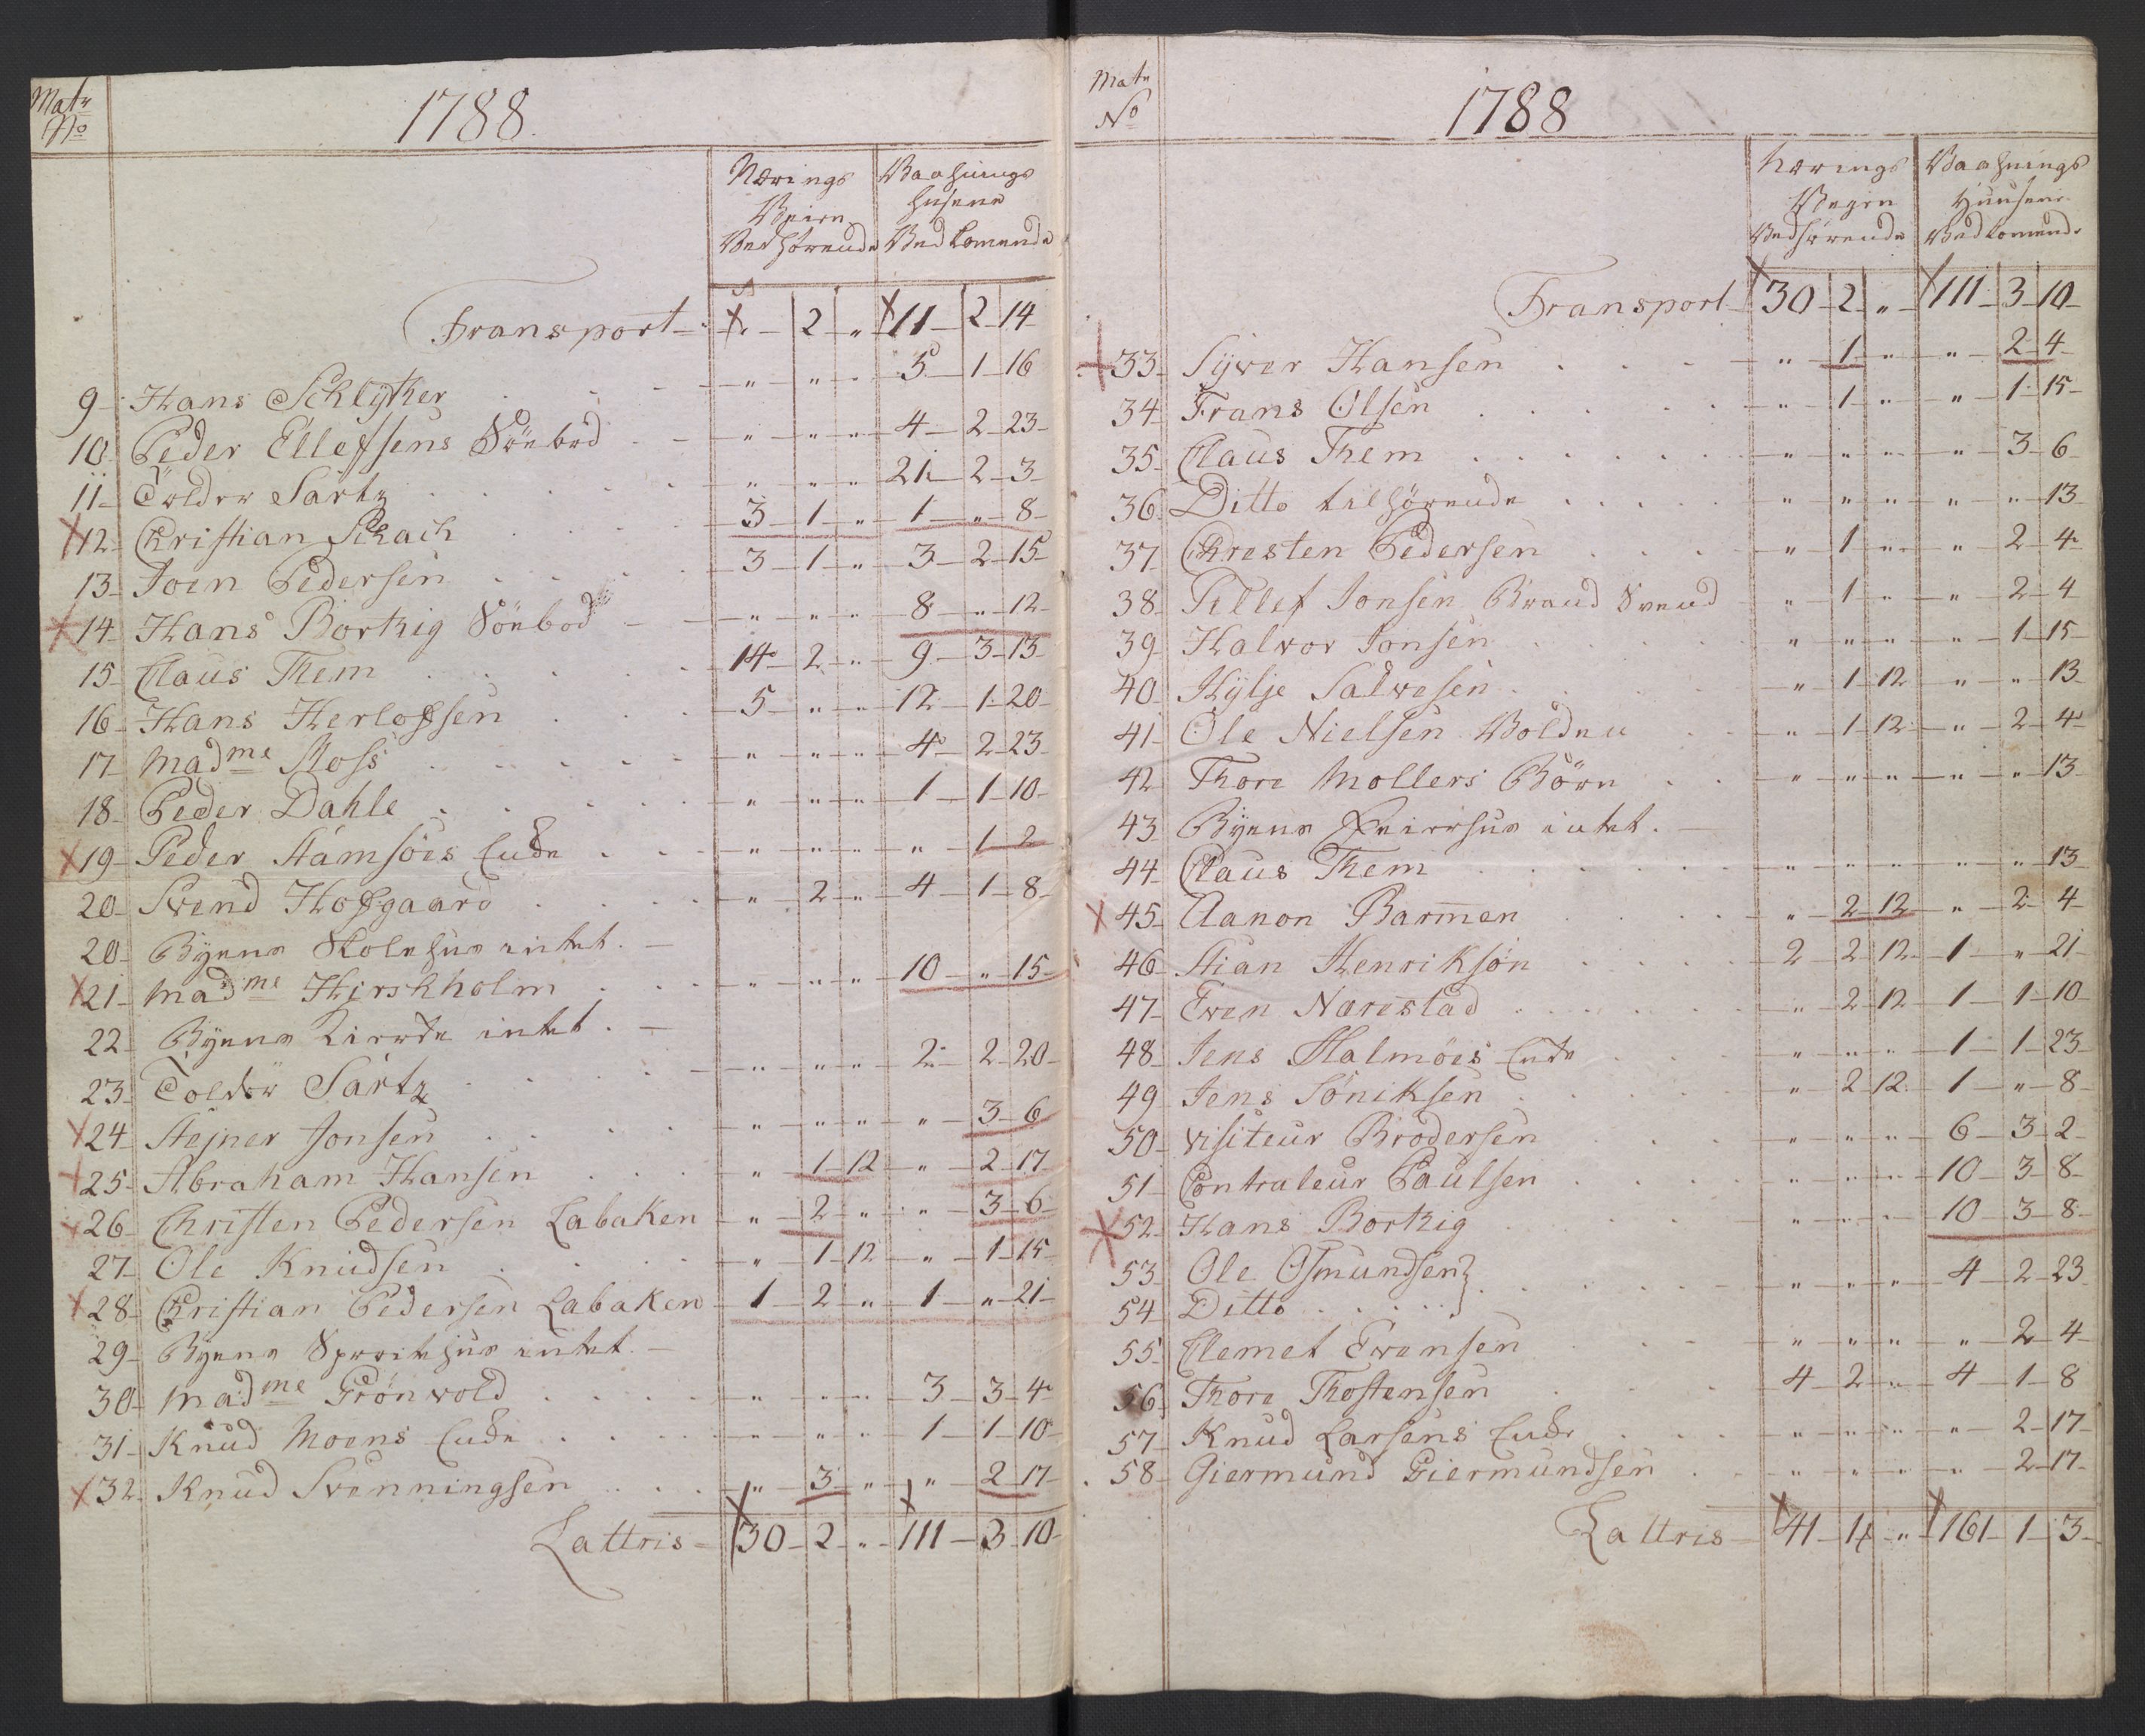 Matr
No
1788.
Nærings
Veien
Vedhörende
Vaahnings
husene
Vedkomende
Transport - " - 2 - " - 11 - 2 - 14
9 Hans Schlÿtter . . . " - " - " - 5 - 1 - 16
10 Peder Ellefsens Söebod - " - " - " - 4 - 2 - 23
11 Tolder Sartz . . . " - " - " - 21 - 2 - 3
12 Christian Schach . . . 3 - 1 - " - 1 - " - 8
13 Joen Pedersen . . . 3 - 1 - " - 3 - 2 - 15
14 Hans Borthig Söebod - " - " - " - 8 - " - 12
15 Claus Them . . . 14 - 2 - " - 9 - 3 - 13
16 Hans Herlofsen . . . 5 - " - " - 12 - 1 - 20
17 Madme Moss . . . " - " - " - 4 - 2 - 23
18 Peder Dahle . . . " - " - " - 1 - 1 - 10
19 Peder Stamsöes Encke . . . " - " - " - " - 1 - 2
20 Svend Hofgaard . . . " - 2 - " - 4 - 1 - 8
20 Byens Skolehus intet. -
21 Madme Hirshholm . . . " - " - " - 10 - " - 15
22 Byens Kircke intet. -
23 Tolder Sartz . . . " - " - " - 2 - 2 - 20
24 Stejner Jonsen . . . " - " - " - " - 3 - 6
25 Abraham Hansen . . . " - 1 - 12 - " - 2 - 17
26 Christen Pedersen Labaken - " - 2 - " - " - 3 - 6
27 Ole Knudsen . . . " - 1 - 12 - " - 1 - 15
28 Christian Pedersen Labaken - 1 - 2 - " - 1 - " - 21
29 Byens Sprøitehus intet. -
30 Madme Grönvold . . . " - " - " - 3 - 3 - 4
31 Knud Moens Encke . . . " - " - " - 1 - 1 - 10
32 Knud Svenningsen . . . " - 3 - " - " - 2 - 17
Lattris - 30 - 2 - " - 111 - 3 - 10
Matr
No
1788
Nærings
Vegen
Vedhörende
Vaahnings
Huusene
Vedkomende
Transport - 30 - 2 - " - 111 - 3 - 10
33 Syver Hansen . . . " - 1 - " - " - 2 - 4
34 Frans Olsen . . . " - 1 - " - " - 1 - 15
35 Claus Them . . . " - " - " - " - 3 - 6
36 Ditto tilhörende . . . " - " - " - " - " - 13
37 Chresten Pedersen . . . " - 1 - " - " - 2 - 4
38 Tellef Jonsen Brand Svend " - 1 - " - " - 2 - 4
39 Halvor Jonsen . . . " - " - " - " - 1 - 15
40 Hÿlje Salvesen . . . " - 1 - 12 - " - " - 13
41 Ole Nielsen Volden . . " - 1 - 12 - " - 2 - 4
42 Thore Mollers Börn . . " - " - " - " - " - 13
43 Byens intet. -
44 Claus Them . . . " - " - " - " - " - 13
45 Aanon Barmen . . . " - 2 - 12 - " - 2 - 4
46 Stian Henriksøn . . . 2 - 2 - 12 - 1 - " - 21
47 Even Nærestad . . . " - 2 - 12 - 1 - 1 - 10
48 Jens Malmöes Encke . . " - " - " - 1 - 1 - 23
49 Jens Söniksen . . . " - 2 - 12 - 1 - " - 8
50 Visiteur Brodersen . . . " - " - " - 6 - 3 - 2
51 Contraleur Paulsen . . . " - " - " - 10 - 3 - 8
52 Hans Borthig . . . " - " - " - 10 - 3 - 8
53 Ole Osmundsen } . . . " - " - " - 4 - 2 - 23
54 Ditto . . . . . }
55 Clemet Evensen . . . " - " - " - " - 2 - 4
56 Thore Thostensen . . . 4 - 2 - " - 4 - 1 - 8
57 Knud Larsens Encke . . . " - " - " - " - 2 - 17
58 Giermund Giermundsen . . " - " - " - " - 2 - 17
Lattris - 41 - 4 - " - 161 - 1 - 3